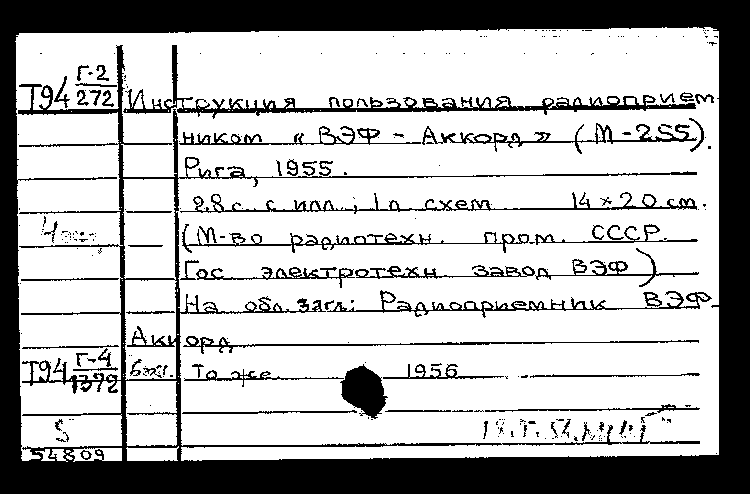 Т94 Г-2/272 Инструкция пользования радиоприем-
ником « ВЭФ - Аккорд » (М - 255).
Рига, 1955.
28 с. с илл.; 1 л схем 14 × 20 см.
(М-во радиотехн. пром. СССР.
Гос электротехн завод ВЭФ)
На обл. загл: Радиоприемник ВЭФ-
Аккорд
Т94 Г-4/1372 То же 1956
5
54809